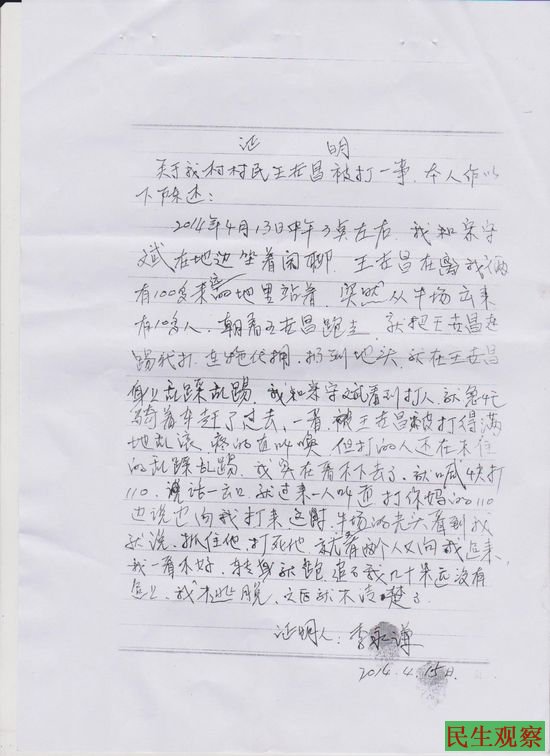 证 明
关于我村村民王占昌被打一事,本人作以
下陈述:
2014年4月13日中午3点左右,我和宋守
斌在地边坐着闲聊,王占昌在离我俩
有100多米远的地里站着,突然从牛场出来
有10多人,朝着王占昌跑去,就把王占昌
踢我打,连拖代拥,扔到地头,就在王占昌
身上乱踩乱踢,我和宋守斌看到打人,就急忙
骑着车赶了过去,一看王占昌被打得满
地乱滚,疼的直叫唤,但打的人还在不住
的乱踩乱踢,我实在看不下去了,就喊快打
110,说话一出口,就过来一人叫道打你妈的110
边说边向我打来,这时,牛场的老大看到我
就说,抓住他,打死他,就有两个人又向我追来,
我一看不好,转身就跑,追了我几十米远没有
追上,我才逃脱,之后就不清楚了
证明人:李永谦
2014.4.15日.
民生观察